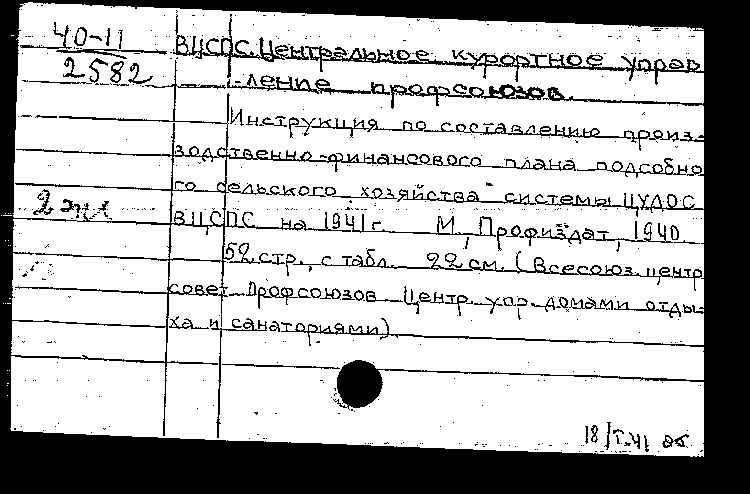 40-11
2582
ВЦСПС. Центральное курортное управ
-ление профсоюзов.
Инструкция по составлению произ-
водственно-финансового плана подсобно
го сельского хозяйства системы ЦУДОС
2 экз
ВЦСПС на 1941 г. М, Профиздат, 1940.
52 стр., с табл. 22 см. (Всесоюз. центр
совет Профсоюзов Центр. упр. домами отды-
ха и санаториями).
18/I-41